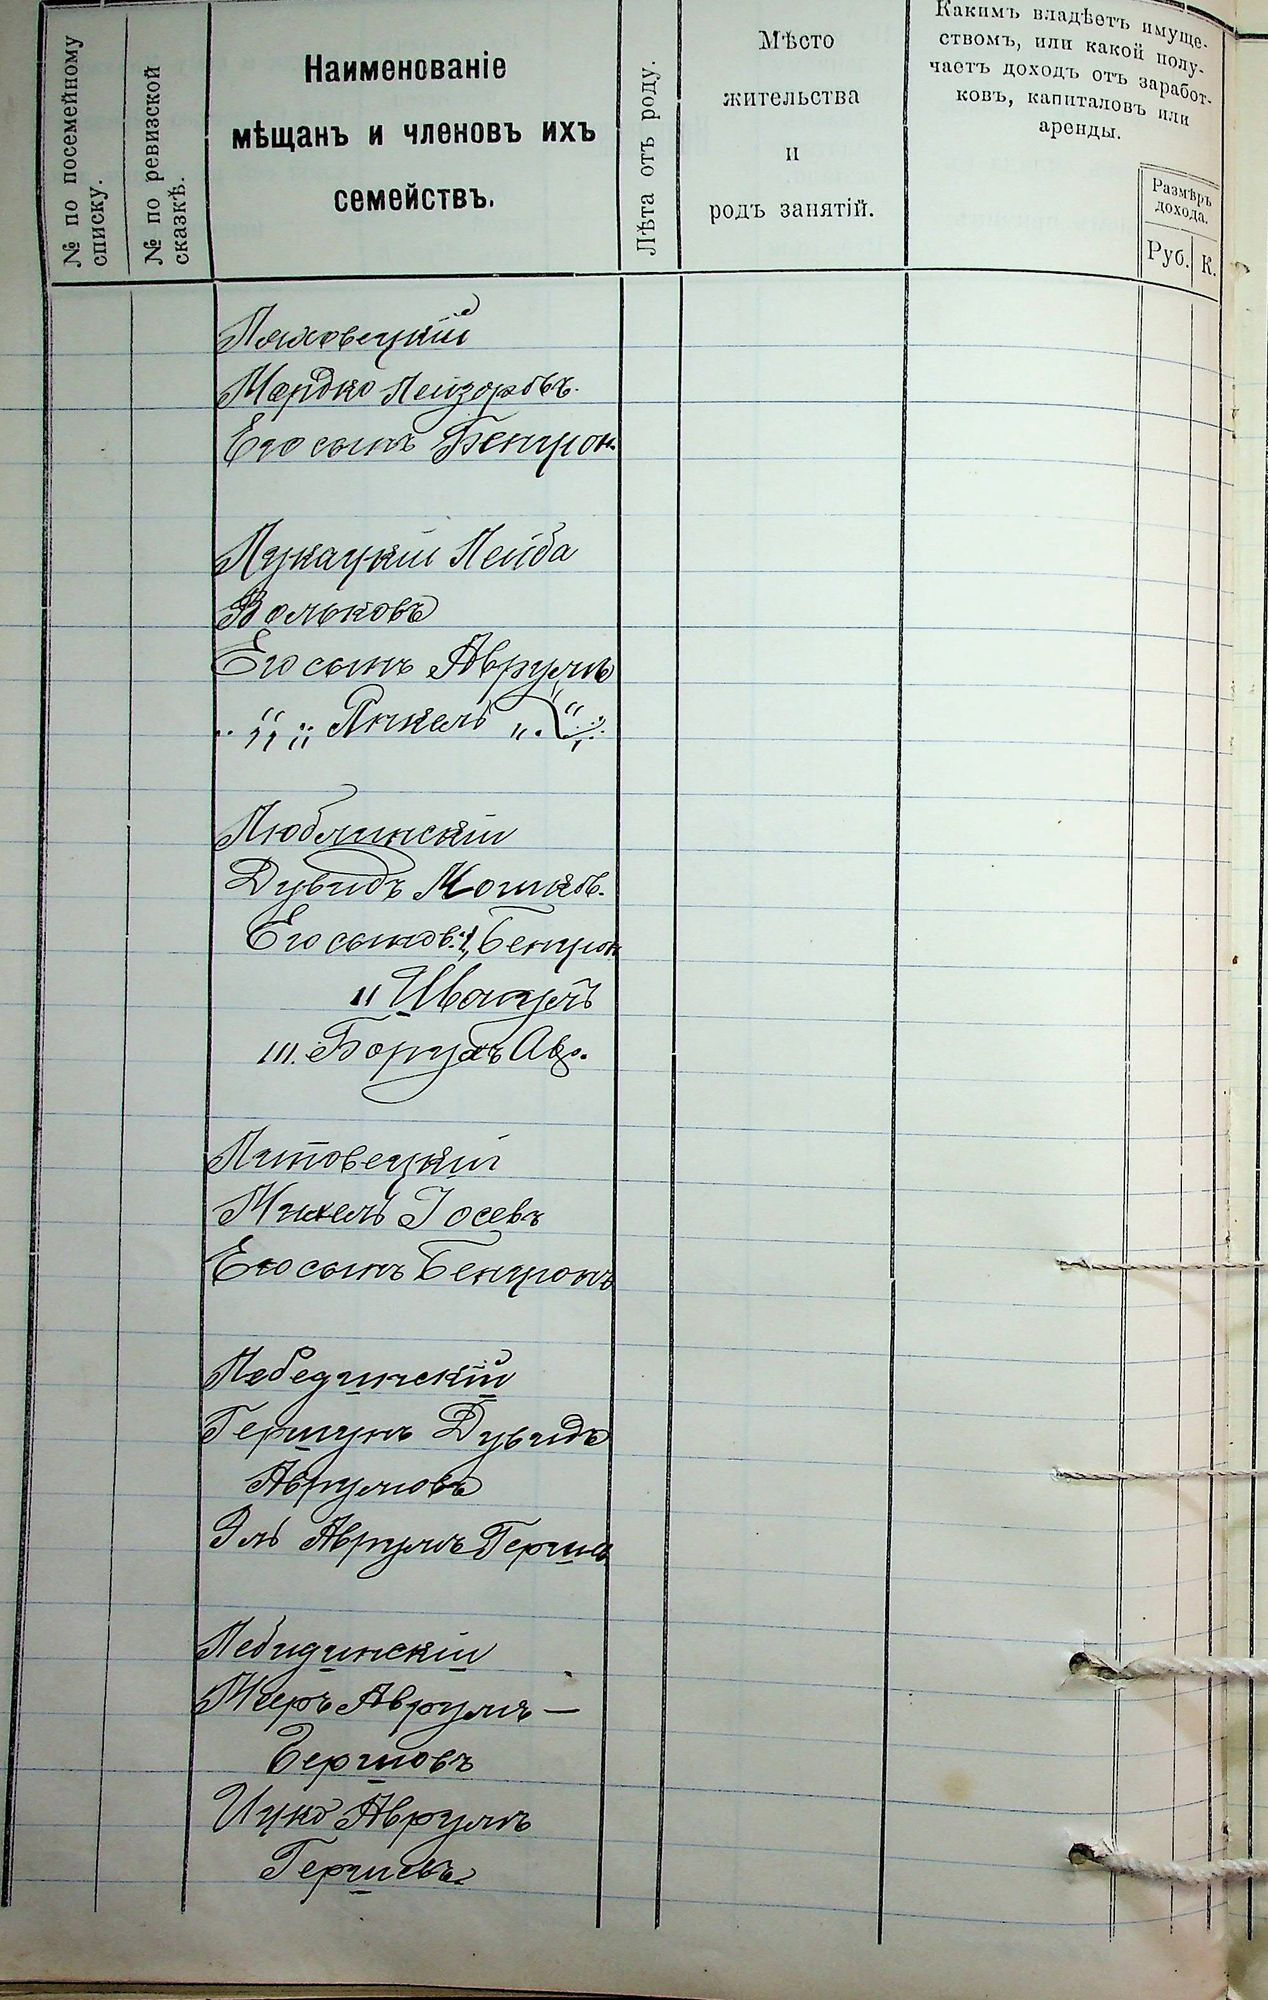 № по посемейному
списку.
№ по ревизской
сказкѣ.
Наименованіе
мѣщанъ и членовъ ихъ
семействъ.
Лѣта отъ роду.
Мѣсто
жительства
и
родъ занятій.
Какимъ владѣетъ имуще-
ствомъ, или какой полу-
чаетъ доходъ отъ заработ-
ковъ, капиталовъ или
аренды.
Размѣръ
дохода.
Руб. К.
Ляховецкій
Мордко Лейзоровъ.
Его сынъ Бенціон.
Лукацкій Лейба
Вольковъ
Его сынъ Аврумъ
" " Янкель " "
Люблинскій
Дувидъ Мошков.
Его сынов. I, Бенцион
II
III. Борухъ Ав.
Литовецкій
Михель Іосевъ
Его сынъ Бенціонъ
Лебединскій
Гершунъ Дувидъ
Аврумовъ
Эль Аврумъ Герш.
Лебидинскій
Мееръ Аврумъ —
Гершовъ
Ицко Аврумъ
Гершовъ